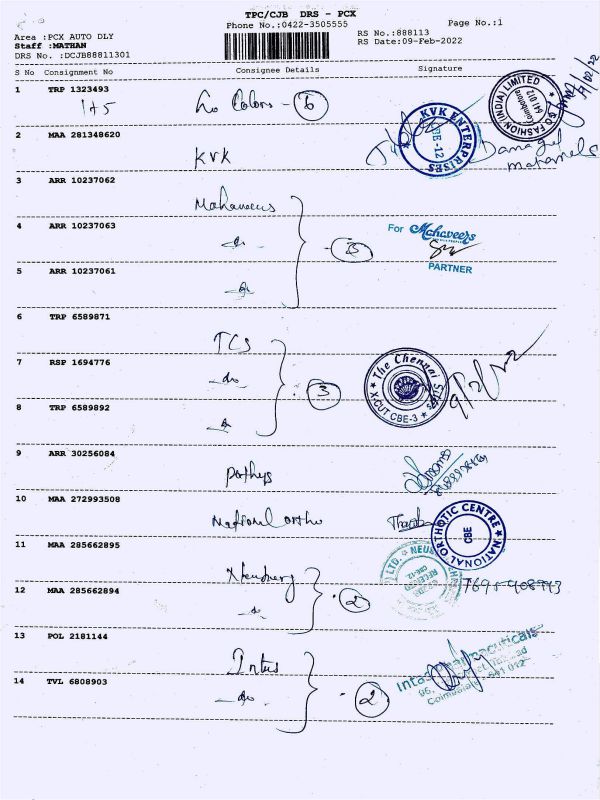 TPC/CJB DRS - PCX
Phone No.:0422-3505555 Page No.:1
Area :PCX AUTO DLY RS No.:888113
Staff :MATHAN RS Date:09-Feb-2022
DRS No. :DCJB88811301
S No Consignment No Consignee Details Signature
1 TRP 1323493
1+5 Go Colors - 6
GO FASHION (INDIA) LIMITED
Coimbatore
641 012
2 MAA 281348620
KVK
KVK ENTERPRISES
CBE-12
3 ARR 10237062
Mahaveers
4 ARR 10237063
-do- 3
For Mahaveers
PARTNER
5 ARR 10237061
-do-
6 TRP 6589871
TCS
7 RSP 1694776
-do- 3
The Chennai Silks
X-CUT CBE-3
8 TRP 6589892
-do-
9 ARR 30256084
pothys
10 MAA 272993508
National ortho
NATIONAL ORTHOTIC CENTRE
CBE
11 MAA 285662895
Neuberg
12 MAA 285662894
-do- 2
RECEIVED
13 POL 2181144
Intas
Intas Pharmaceuticals
86,
Coimbatore - 641 012
14 TVL 6808903
-do- 2